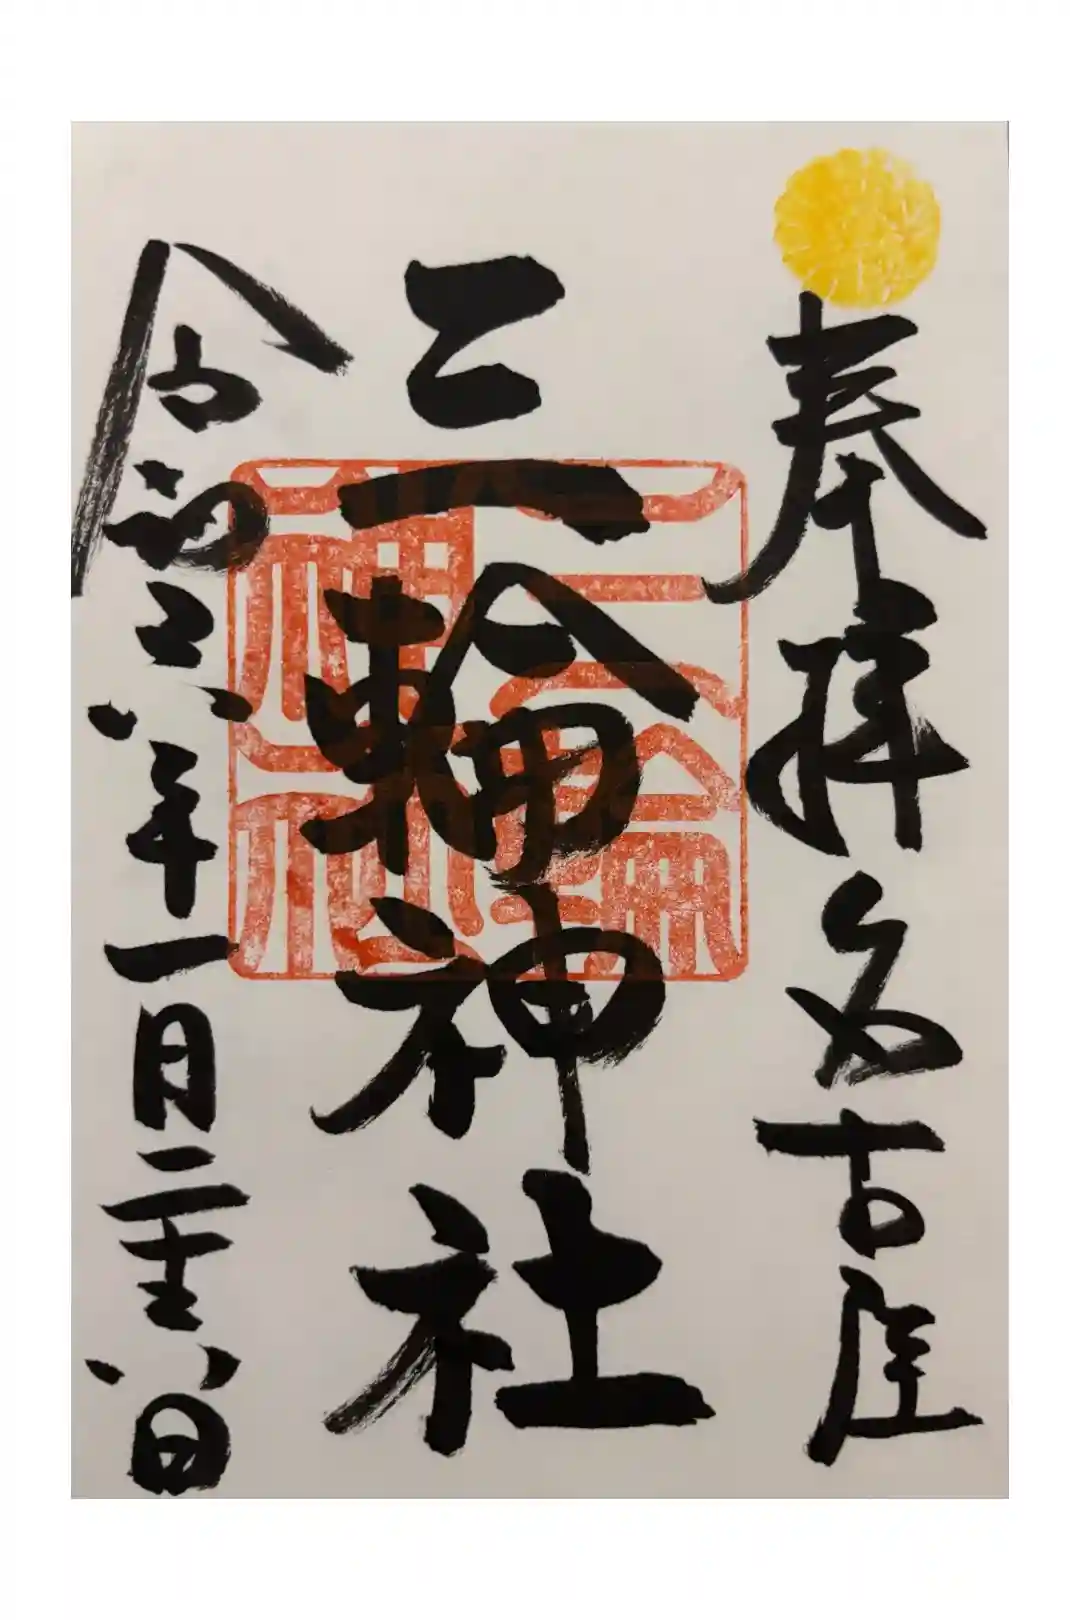 奉拝 名古屋
三輪神社
令和六年一月二十六日
三輪
神社